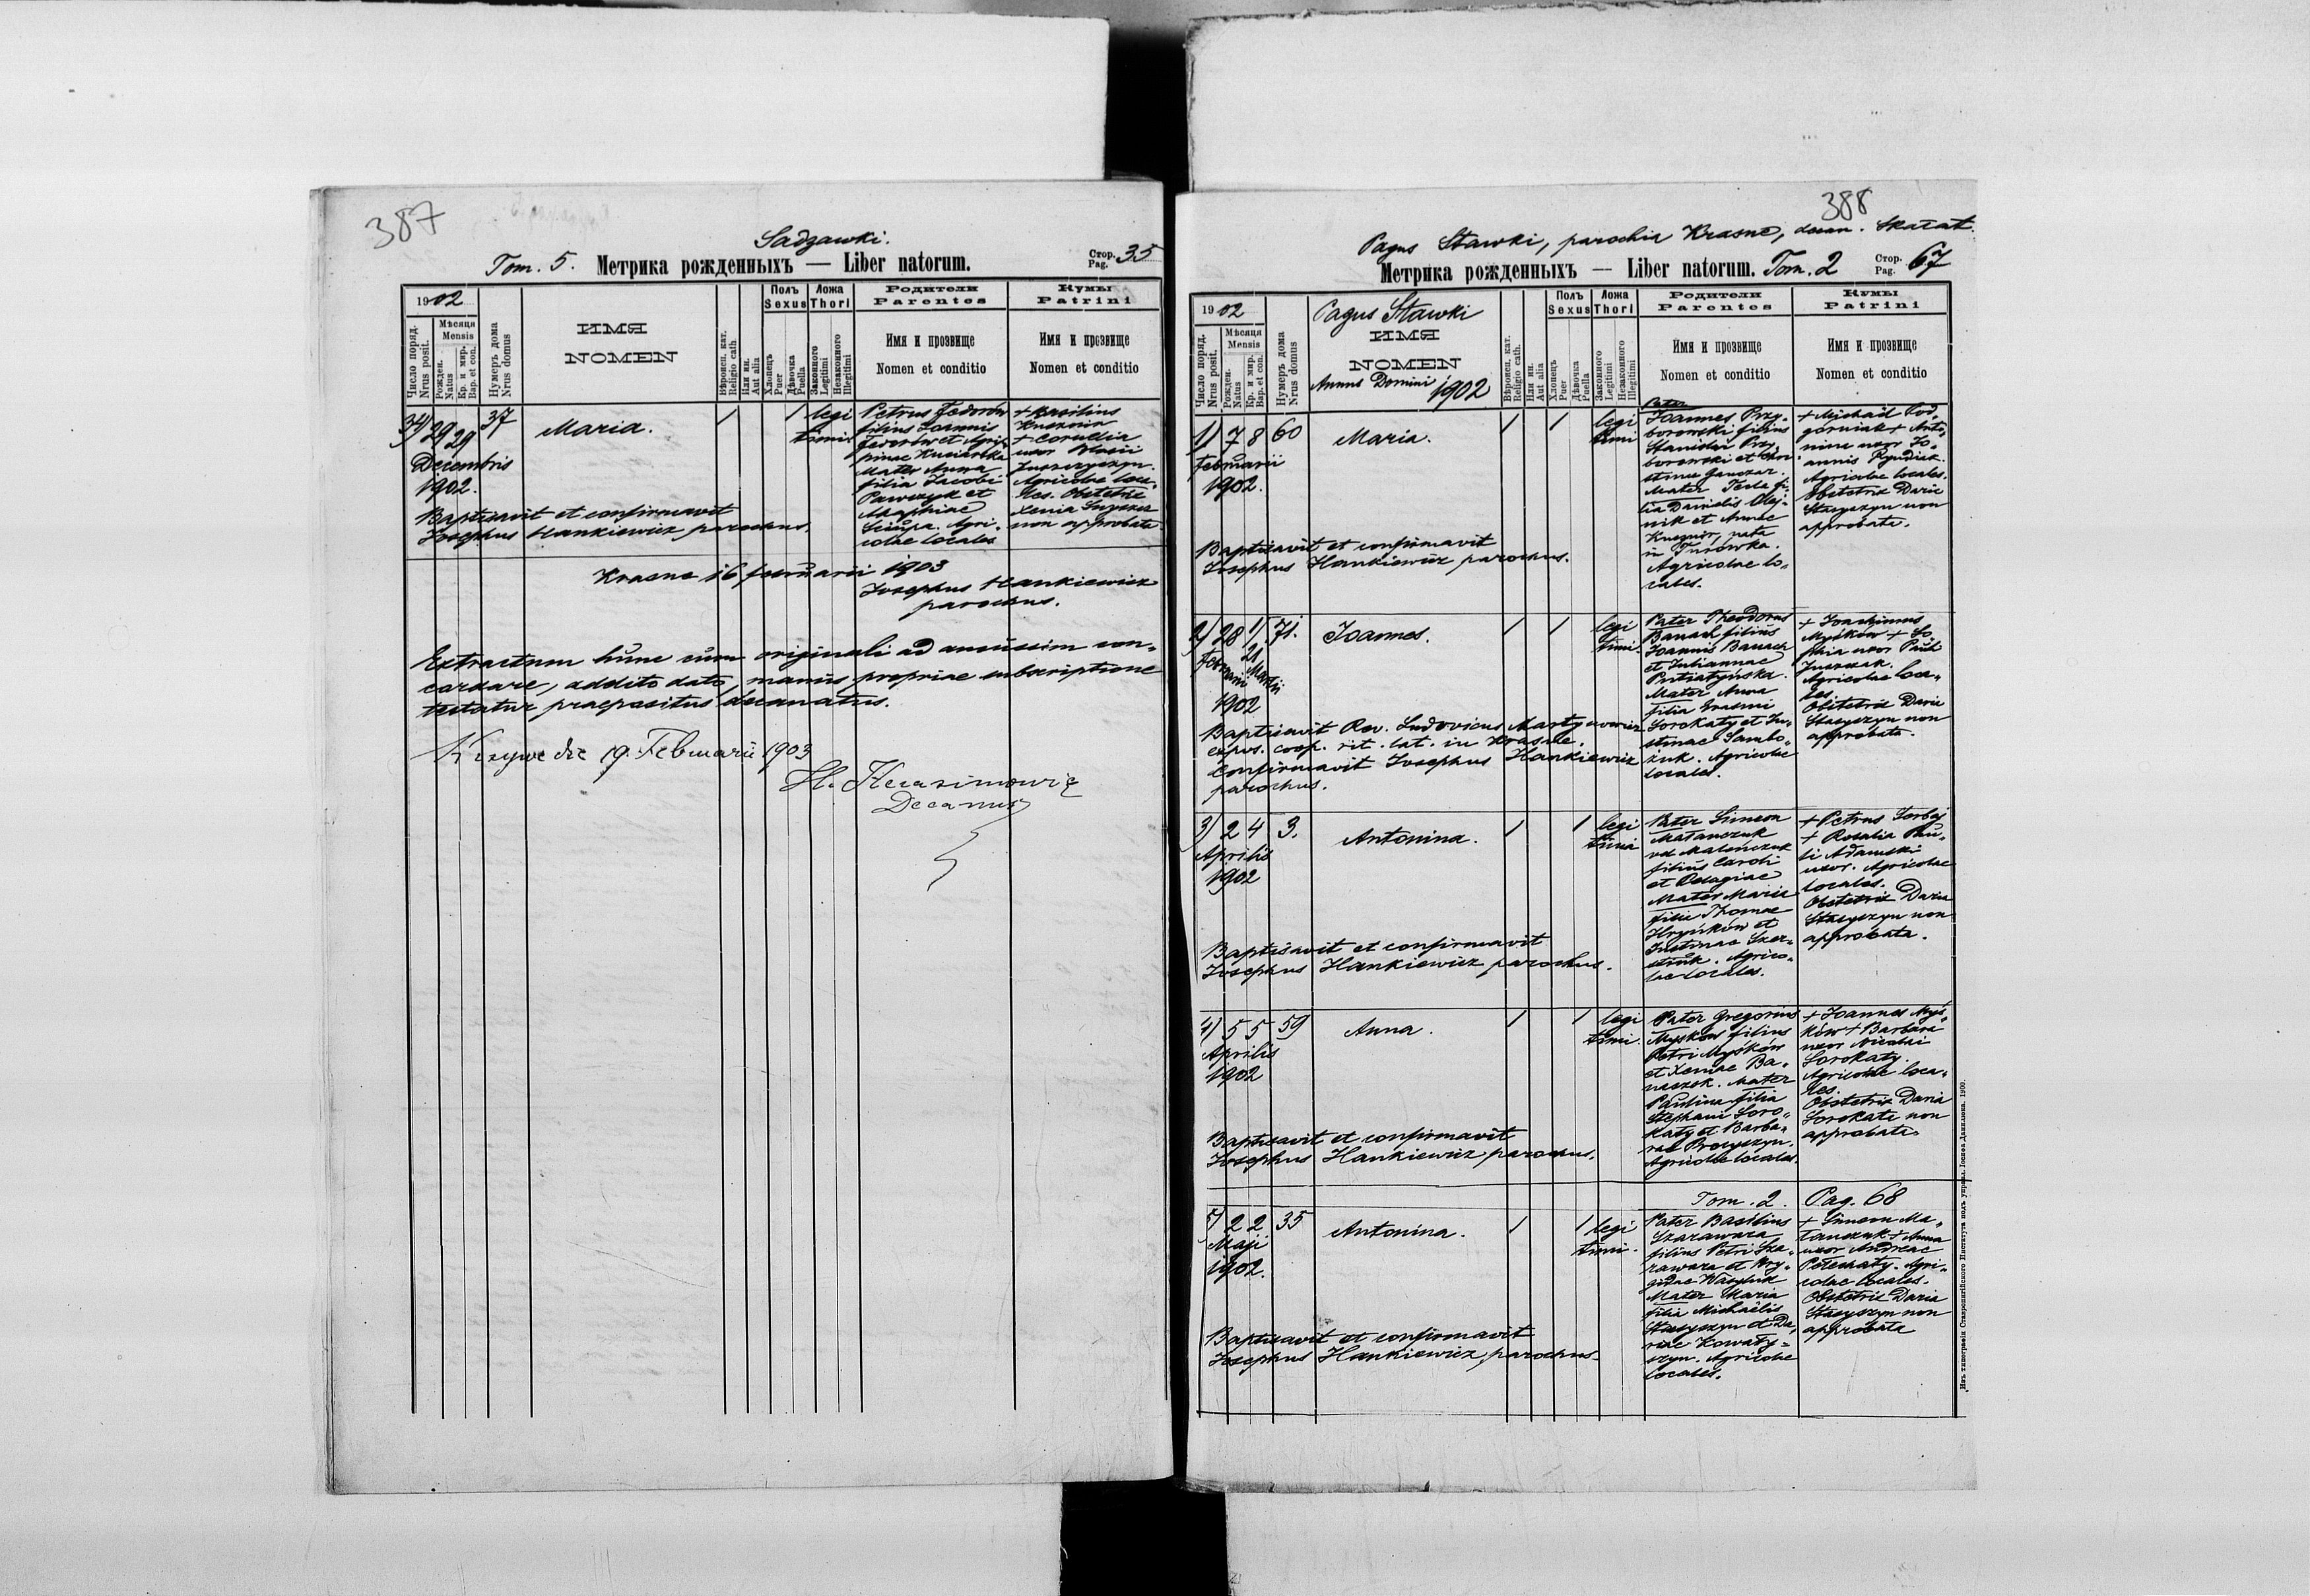 387
Sadzawki.
Tom. 5. Метрика рожденныхъ — Liber natorum. Стор. Pag. 35
1902
Число поряд. Nrus posit.
Мѣсяця Mensis
Рожден. Natus
Кр. и мир. Bap. et con.
Нумеръ дома Nrus domus
ИМЯ
NOMEN
Вѣроисп. кат. Religio cath.
Или ин. Aut alia
Полъ Sexus
Хлопецъ Puer
Дѣвочка Puella
Ложа Thori
Законного Legitimi
Незаконного Illegitimi
Родители
Parentes
Имя и прозвище
Nomen et conditio
Кумы
Patrini
Имя и прозвище
Nomen et conditio
34) 29 29 37 Maria. / / legi
timi
Decembris
1902.
Petrus Fedorów
filius Joannis
Fedorów et Agrip
pinae
Mater Anna
filia Jacobi
Pawczyk et
Agaphiae
Agri-
colae locales
+ Basilius
+ Cornelia
uxor Blasii
Agricolae loca-
les. Obstetrix
Xenia
non approbata
Baptisavit et confirmavit
Josephus Hankiewicz parochus.
Krasne 16 februarii 1903
Josephus Hankiewicz
parochus.
Extractum hunc cum originali ad amussim con-
cordare, addito dato, manus propriae subscriptione
testatur praepositus decanatus.
Krzywe die 19. Februarii 1903
H. Kerasimowicz
Decanus
388
Pagus Stawki, parochia Krasne, decan. Skałat.
Метрика рожденныхъ — Liber natorum. Tom. 2 Стор. Pag. 67
1902
Число поряд. Nrus posit.
Мѣсяця Mensis
Рожден. Natus
Кр. и мир. Bap. et con.
Нумеръ дома Nrus domus
Pagus Stawki
ИМЯ
NOMEN
Annus Domini 1902
Вѣроисп. кат. Religio cath.
Или ин. Aut alia
Полъ Sexus
Хлопецъ Puer
Дѣвочка Puella
Ложа Thori
Законного Legitimi
Незаконного Illegitimi
Родители
Parentes
Имя и прозвище
Nomen et conditio
Кумы
Patrini
Имя и прозвище
Nomen et conditio
1) 7 8 60 Maria. / / legi
timi
Februarii
1902.
Pater
Joannes Przy-
borowski filius
Stanislai Przy-
borowski et Chri
stinae Ganczar.
Mater Tecla fi-
lia Danielis Olej-
nik et Annae
nata
in Turówka.
Agricolae lo-
cales.
+ Michael Pod-
górniak + Anto-
nina uxor Jo-
annis
Agricolae locales.
Obstetrix Daria
Stasyszyn non
approbata.
Baptisavit et confirmavit
Josephus Hankiewicz parochus.
2) 28 1/ 71. Joannes. / / legi
timi.
Februarii 21 Martii
1902
Pater Theodorus
Banach filius
Joannis Banach
et Juliannae
Putiatyńska.
Mater Anna
filia Erasmi
Sorokaty et Ju-
stinae Sambo-
Agricolae
locales.
+ Joachimus
Myśków + So
phia uxor Pauli
Juszczak.
Agricolae loca-
les.
Obstetrix Daria
Stasyszyn non
approbata.
Baptisavit Rev. Ludovicus Martynowicz
expos. coop. rit. lat. in Krasne.
Confirmavit Josephus Hankiewicz
parochus.
3) 2 4 3. Antonina. / / legi
timi
Aprilis
1902
Pater Simeon
Matanczuk
vel Malanczuk
filius Caroli
et Pelagiae
Mater Maria
filia Thomae
Hryńków et
Justinae Szew-
Agrico-
lae locales.
+ Petrus Sorbej
+ Rosalia Pau-
li Adamski
uxor. Agricolae
locales.
Obstetrix Daria
Stasyszyn non
approbata.
Baptisavit et confirmavit
Josephus Hankiewicz parochus.
4) 5 5 59 Anna. / / legi
timi.
Aprilis
1902
Pater Gregorius
Myśków filius
Petri Myśków
et Xeniae Ba-
Mater
Paulina filia
Stephani Soro-
katy et Barba-
rae
Agricolae locales.
+ Joannes Myś-
ków + Barbara
uxor Nicolai
Sorokaty.
Agricolae loca-
les.
Obstetrix Daria
Sorokata non
approbata.
Baptisavit et confirmavit
Josephus Hankiewicz parochus.
Tom. 2. Pag. 68
5) 2 2 35 Antonina. / / legi
timi.
Maji
1902.
Pater Basilius
Szarawara
filius Petri Sza-
rawara et Bry-
gidae Wasylnik
Mater Maria
filia Michaëlis
Stasyszyn et Da-
riae Kowaly-
szyn. Agricolae
locales.
+ Simeon Ma-
tanczuk + Anna
uxor Andreae
Agri-
colae locales.
Obstetrix Daria
Stasyszyn non
approbata
Baptisavit et confirmavit
Josephus Hankiewicz parochus.
Изъ типографіи Ставропигійского Института подъ управл. Іосифа Данилюка. 1900.